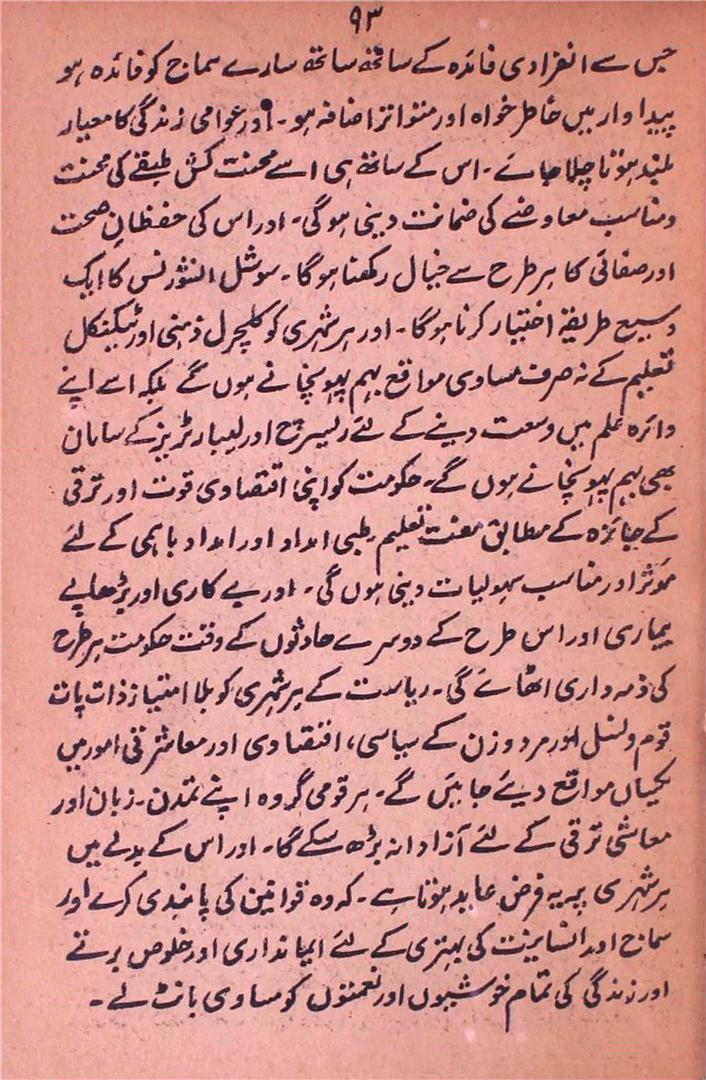 ۹۳
جس سے انفرادی فائدہ کے ساتھ ساتھ سارے سماج کو فائدہ ہو
پیداوار میں خاطر خواہ اور متواتر اضافہ ہو۔ اور عوامی زندگی کا معیار
بلند ہوتا چلا جائے۔ اس کے ساتھ ہی اسے محنت کش طبقے کی محنت
ومناسب معاوضے کی ضمانت دینی ہوگی۔ اور اس کی حفظانِ صحت
اور صفائی کا ہر طرح سے خیال رکھنا ہوگا۔ سوشل انشورنس کا ایک
وسیع طریقہ اختیار کرنا ہوگا۔ اور ہر شہری کو کلچرل ذہنی اور ٹیکنیکل
تعلیم کے نہ صرف مساوی مواقع بہم پہونچانے ہوں گے بلکہ اسے اپنے
دائرہ علم میں وسعت دینے کے لئے ریسرچ اور لیبارٹریز کے سامان
بھی بہم پہونچانے ہوں گے۔ حکومت کو اپنی اقتصادی قوت اور ترقی
کے جائزہ کے مطابق مفت تعلیم طبی امداد اور امداد باہمی کے لئے
مؤثر اور مناسب سہولیات دینی ہوں گی۔ اور بے کاری اور بڑھاپے
بیماری اور اس طرح کے دوسرے حادثوں کے وقت حکومت ہر طرح
کی ذمہ داری اٹھائے گی۔ ریاست کے ہر شہری کو بلا امتیاز ذات پات
قوم ونسل اور مرد وزن کے سیاسی، اقتصادی اور معاشرتی امور میں
یکساں مواقع دیے جائیں گے۔ ہر قومی گروہ اپنے تمدن۔ زبان اور
معاشی ترقی کے لئے آزادانہ بڑھ سکے گا۔ اور اس کے بدلے میں
ہر شہری پر یہ فرض عاید ہوتا ہے۔ کہ وہ قوانین کی پابندی کرے اور
سماج اور انسانیت کی بہتری کے لئے ایمانداری اور خلوص برتے
اور زندگی کی تمام خوشیوں اور نعمتوں کو مساوی بانٹ لے۔